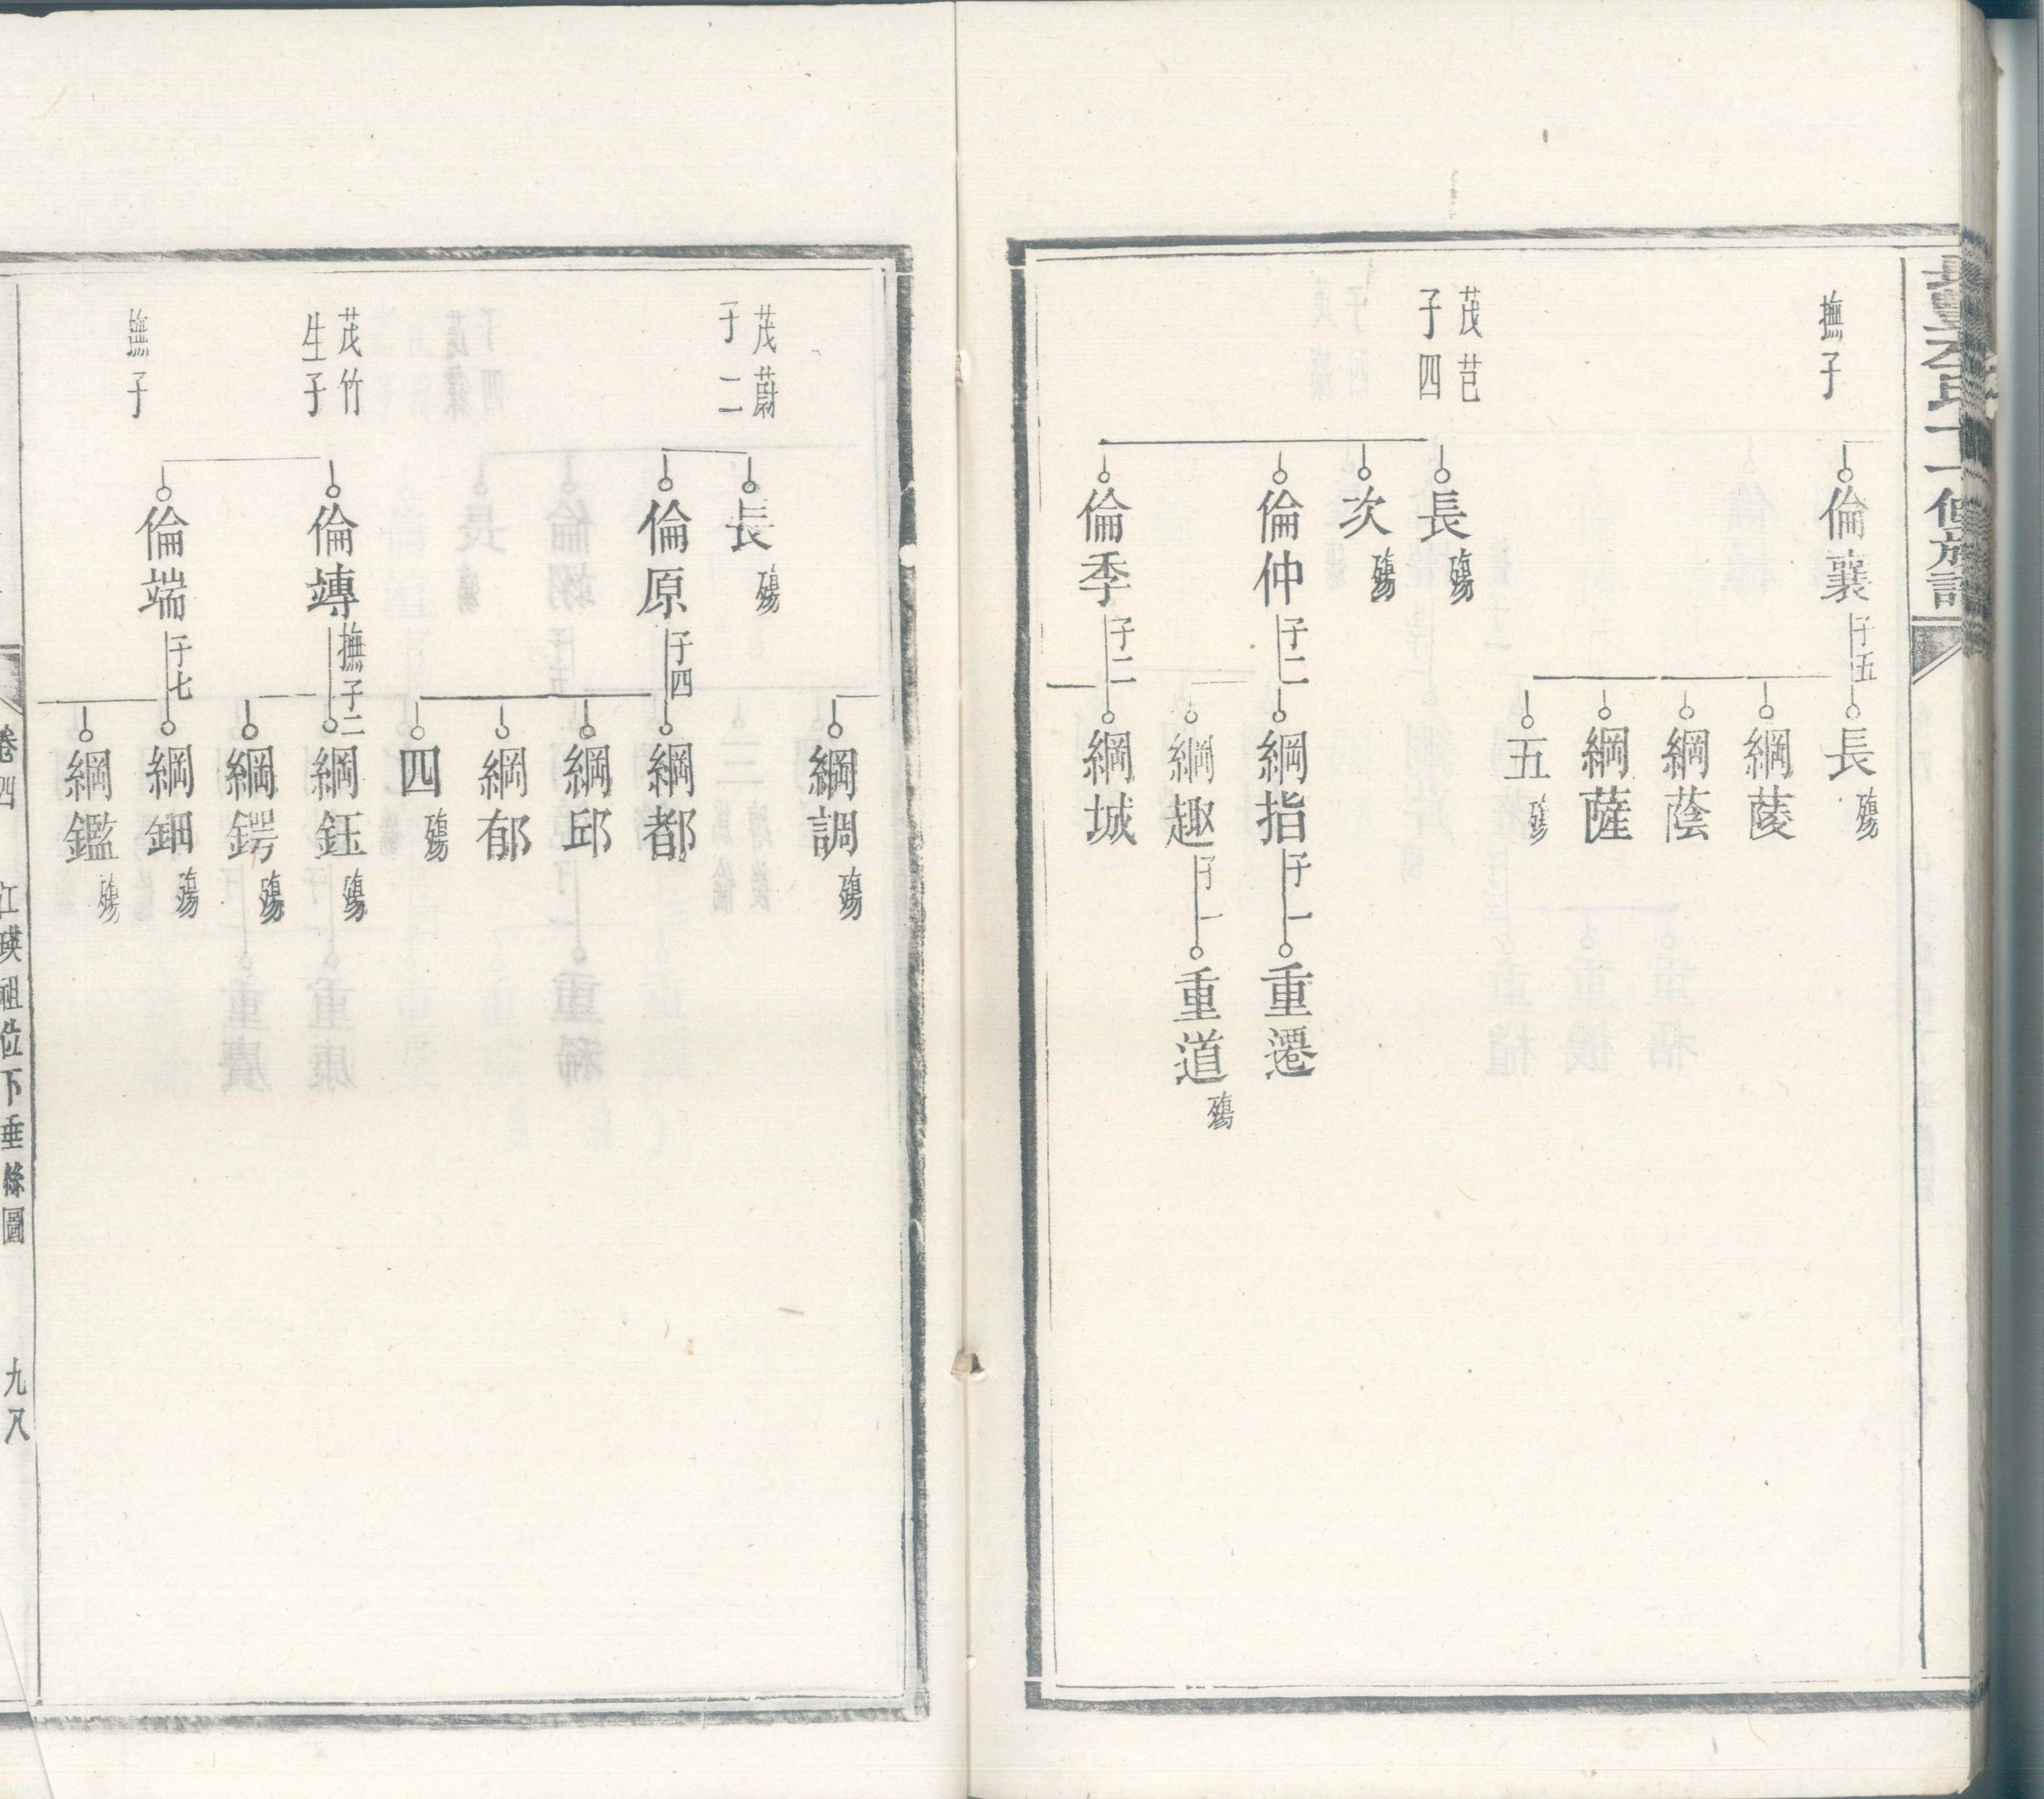 撫子
倫襄 子五
長 殤
綱薐
綱蔭
綱薩
五 殤
茂芑
子四
長 殤
次 殤
倫仲 子二
綱指 子一
重遷
綱趣 子一
重道 殤
倫季 子二
綱城
綱調 殤
茂蔚
子二
長 殤
倫原 子四
綱都
綱邱
綱郁
四 殤
茂竹
生子
倫塼 撫子二
綱鈺 殤
綱鍔 殤
撫子
倫端 子七
綱鈿 殤
綱鑑 殤
卷四
江瑛祖位下垂絲圖
九八